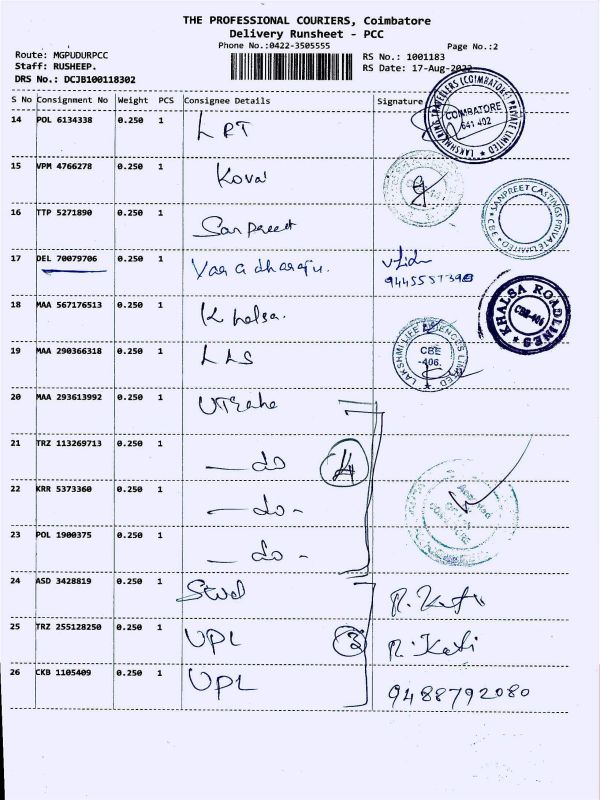 THE PROFESSIONAL COURIERS, Coimbatore
Delivery Runsheet - PCC
Phone No.:0422-3505555
Page No.:2
Route: MGPUDURPCC
RS No.: 1001183
Staff: RUSHEEP.
RS Date: 17-Aug-2022
DRS No.: DCJB100118302
S No Consignment No Weight PCS Consignee Details Signature
LAKSHMI RING TRAVELLERS (COIMBATORE) PRIVATE LIMITED
COIMBATORE
641 402
14 POL 6134338 0.250 1 LRT
15 VPM 4766278 0.250 1 Kovai
16 TTP 5271890 0.250 1 Sanpreet
SANPREET CASTINGS PRIVATE LIMITED CBE
17 DEL 70079706 0.250 1 Varadharaju.
18 MAA 567176513 0.250 1 Khalsa.
KHALSA ROADLINES
CBE-406
19 MAA 290366318 0.250 1 LLS
LAKSHMI LIFE SCIENCES LIMITED
CBE
-406.
20 MAA 293613992 0.250 1
21 TRZ 113269713 0.250 1 —do 4
22 KRR 5373360 0.250 1 —do-
23 POL 1900375 0.250 1 —do-
24 ASD 3428819 0.250 1
25 TRZ 255128250 0.250 1 UPL 3
26 CKB 1105409 0.250 1 UPL 9488792080